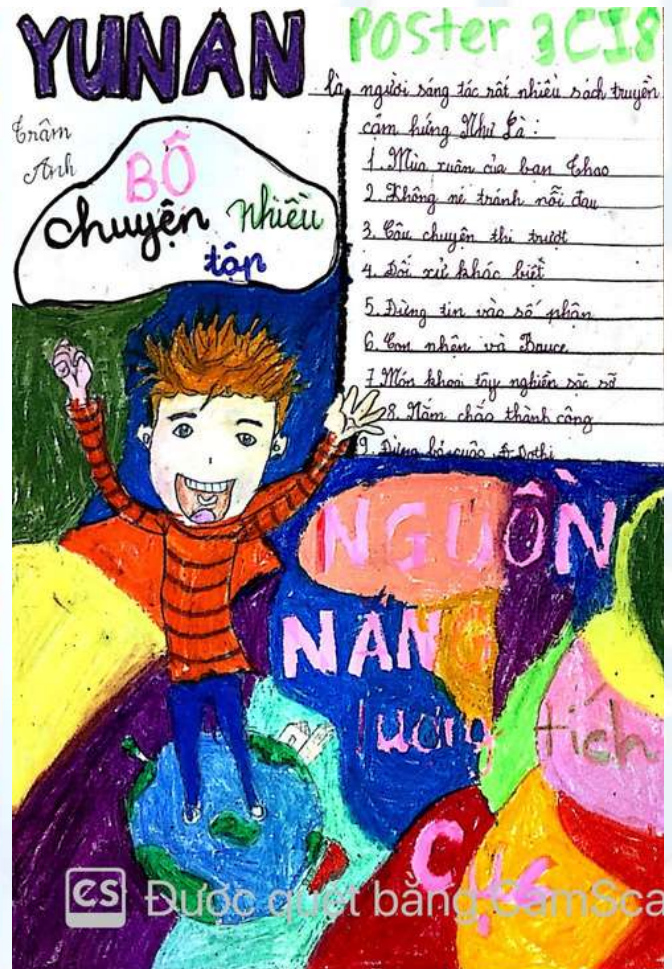 YUNAN
Poster 3CI8
Trâm
Anh
BỐ
chuyện nhiều
tập
là người sáng tác rất nhiều sách truyền
cảm hứng Như Là :
1. Mùa xuân của ban Thao
2. Không né tránh nỗi đau
3. Câu chuyện thi trượt
4. Đối xử khác biệt
5. Đừng tin vào số phận
6. Con nhện và Bruce
7. Món khoai tây nghiền sặc sỡ
8. Nắm chắc thành công
9. Đừng bỏ cuộc
NGUỒN
NĂNG
lượng tích
CỰC
CS Được quét bằng CamSca